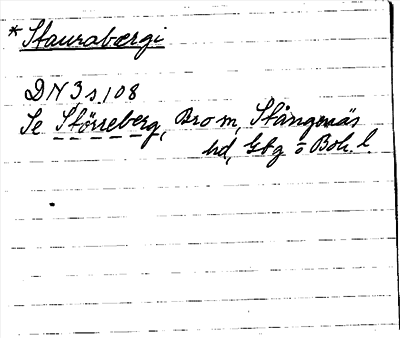 * Staurabærgi
DN 3 s. 108
Se Störreberg, Bro sn, Stångenäs
hd, Gbg o Boh. l.